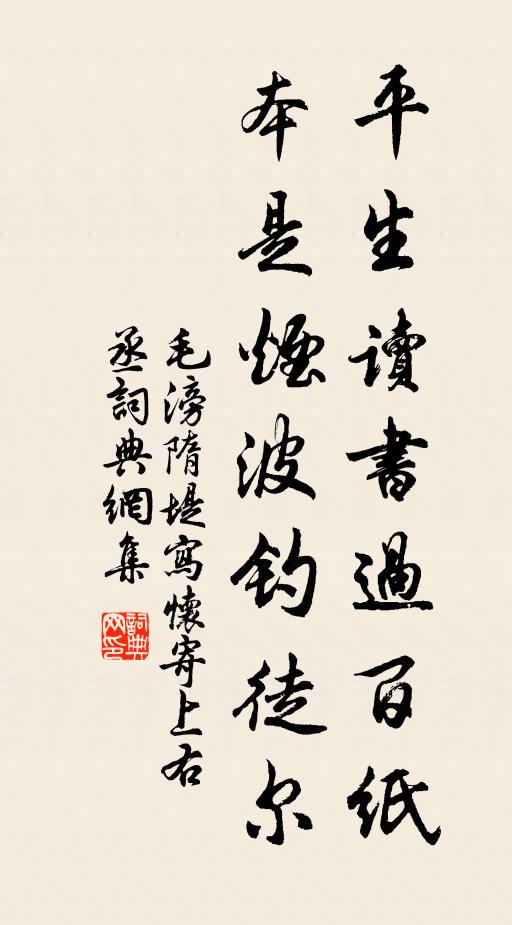 平生讀書過百紙
本是煙波釣徒尔
毛滂隋堤寫懷寄上右
丞詞典網集
詞典網印